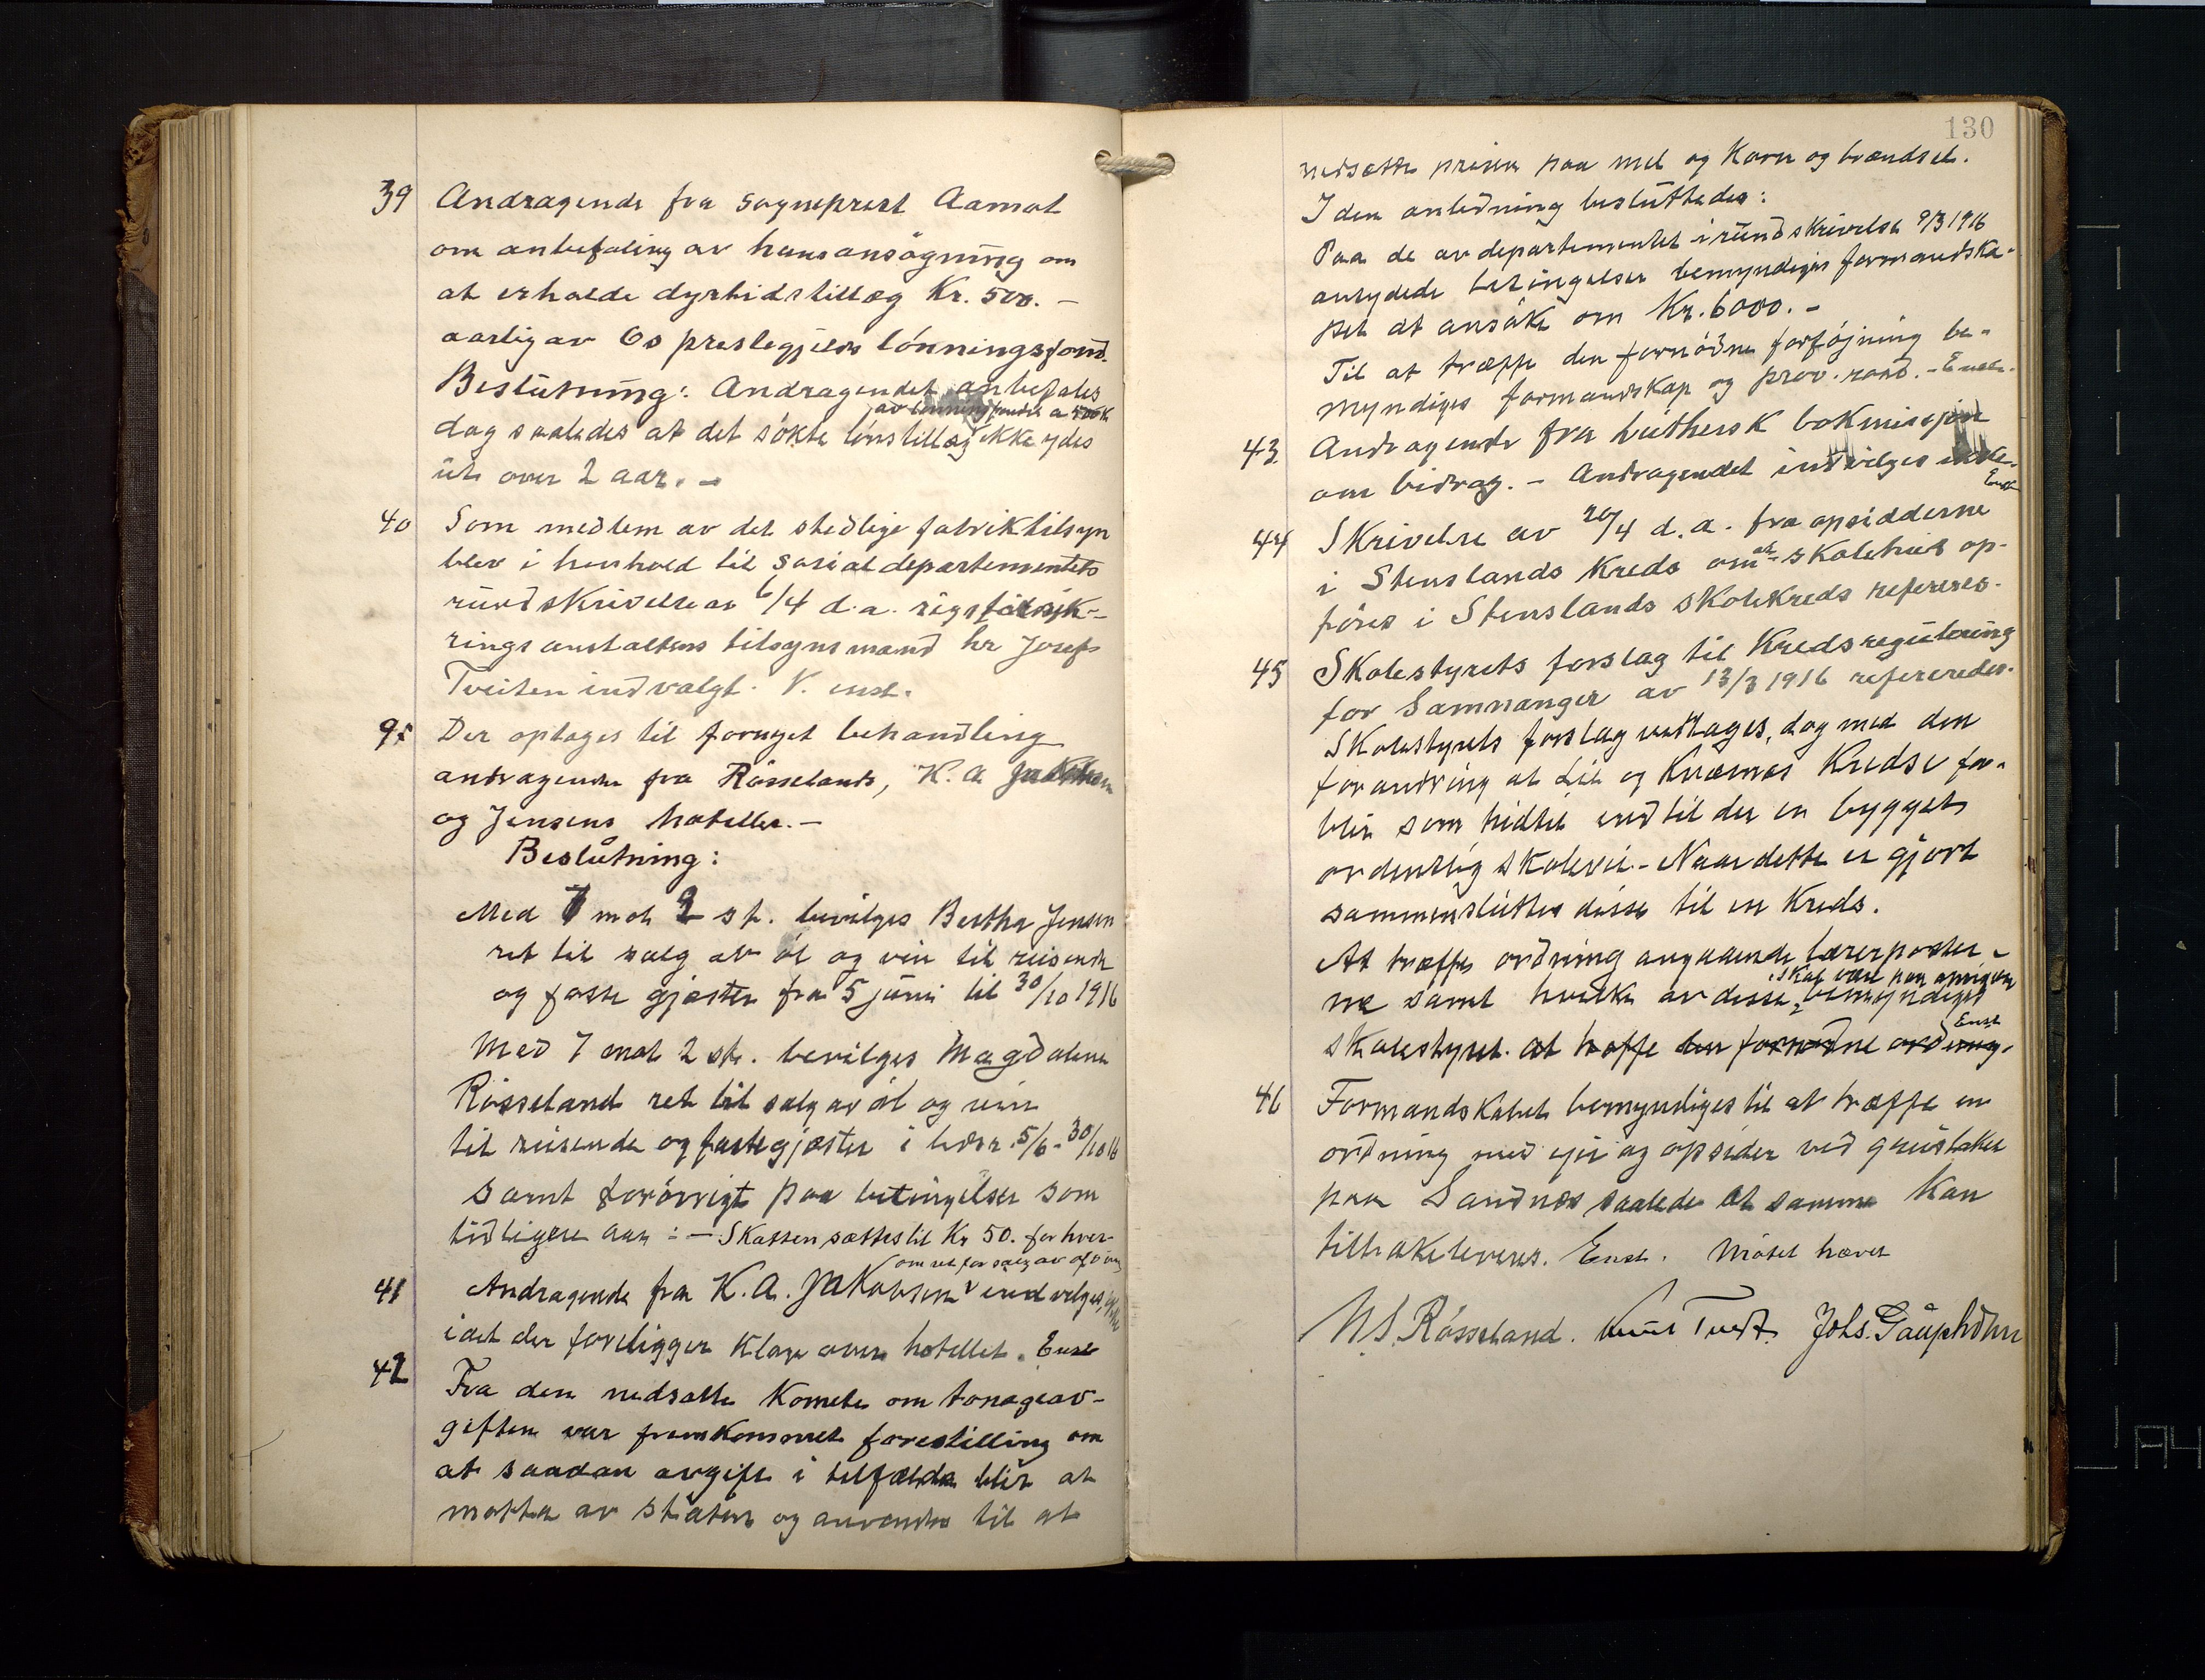 39 Andragende fra sogneprest Aamot
om anbefaling av hans ansögning om
at erholde dyrtidstillæg Kr. 500.–
aarlig av Os prestegjelds lönningsfond.
Beslutning: Andragendet anbefales
av lönningsfondet a 500 K
dog saaledes at det sökte lönstillæg ikke ydes
ut over 2 aar. –
40 Som medlem av det stedlige fabriktilsyn
blev i henhold til Sosialdepartementets
rundskrivelse av 6/4 d.a. rigsforsik-
ringsanstaltens tilsynsmand hr Josef
Tveiten indvalgt. V. enst.
95 Der optages til fornyet behandling
andragende fra Rösselands, K. A. Jakobsen
og Jensens hoteller. –
Beslutning:
Med 7 mot 2 st. bevilges Bertha Jensen
ret til salg av öl og vin til reisende
og faste gjæster fra 5 juni til 30/10 1916
Med 7 mot 2 st. bevilges Magdalena
Rösseland ret til salg av öl og vin
til reisende og faste gjæster i tidsr. 5/6 - 30/10 16
samt forövrigt paa betingelser som
tidligere aar : – Skatten sættes til Kr 50. for hver
om ret for salg av öl o vin
41 Andragende fra K. A. Jakobsen indvilges ikke
idet der foreligger klage over hotellet. Enst
42 Fra den nedsatte Komete om tonageav-
giften var fremkommet forestilling om
at saadan avgift i tilfælde blir at
motta av staten og anvendes til at
130
nedsætte prisen paa mel og Korn og brændsel.
I den anledning besluttedes:
Paa de av departementet i rundskrivelse 9/3 1916
antydede betingelser bemyndiges formandska-
pet at ansöke om Kr. 6000. –
Til at træffe den fornödne forföjning be-
myndiges formandskap og prov. raad. – Enst.
43. Andragende fra luthersk bokmisjon
om bidrag. – Andragendet indvilges ikke.
Enst
44 Skrivelse av 20/4 d.a. fra opsidderne
i Stenslands Kreds om at skolehus op-
föres i Stenslands skolekreds refereres.
45 Skolestyrets forslag til Kredsregulering
for Samnanger av 13/3 1916 refereredes.
Skolestyrets forslag vedtages, dog med den
forandring at Lit og Kvernes Kredse for-
blir som hidtil indtil der er bygget
ordentlig skolevei. – Naar dette er gjort
sammensluttes disse til en Kreds.
At træffe ordning angaaende lærerposter-
skal være paa
ne samt hvilke av disse bemyndiges
Enst
skolestyret. at træffe den fornödne ordning.
46 Formandskabet bemyndiges til at træffe en
ordning med eier og opsider ved grustaket
paa Sandnes saaledes at samme Kan
tilbakeleveres. Enst. Mötet hævet
N. S. Rösseland. Knut Tvedt Johs. Gäuphólm